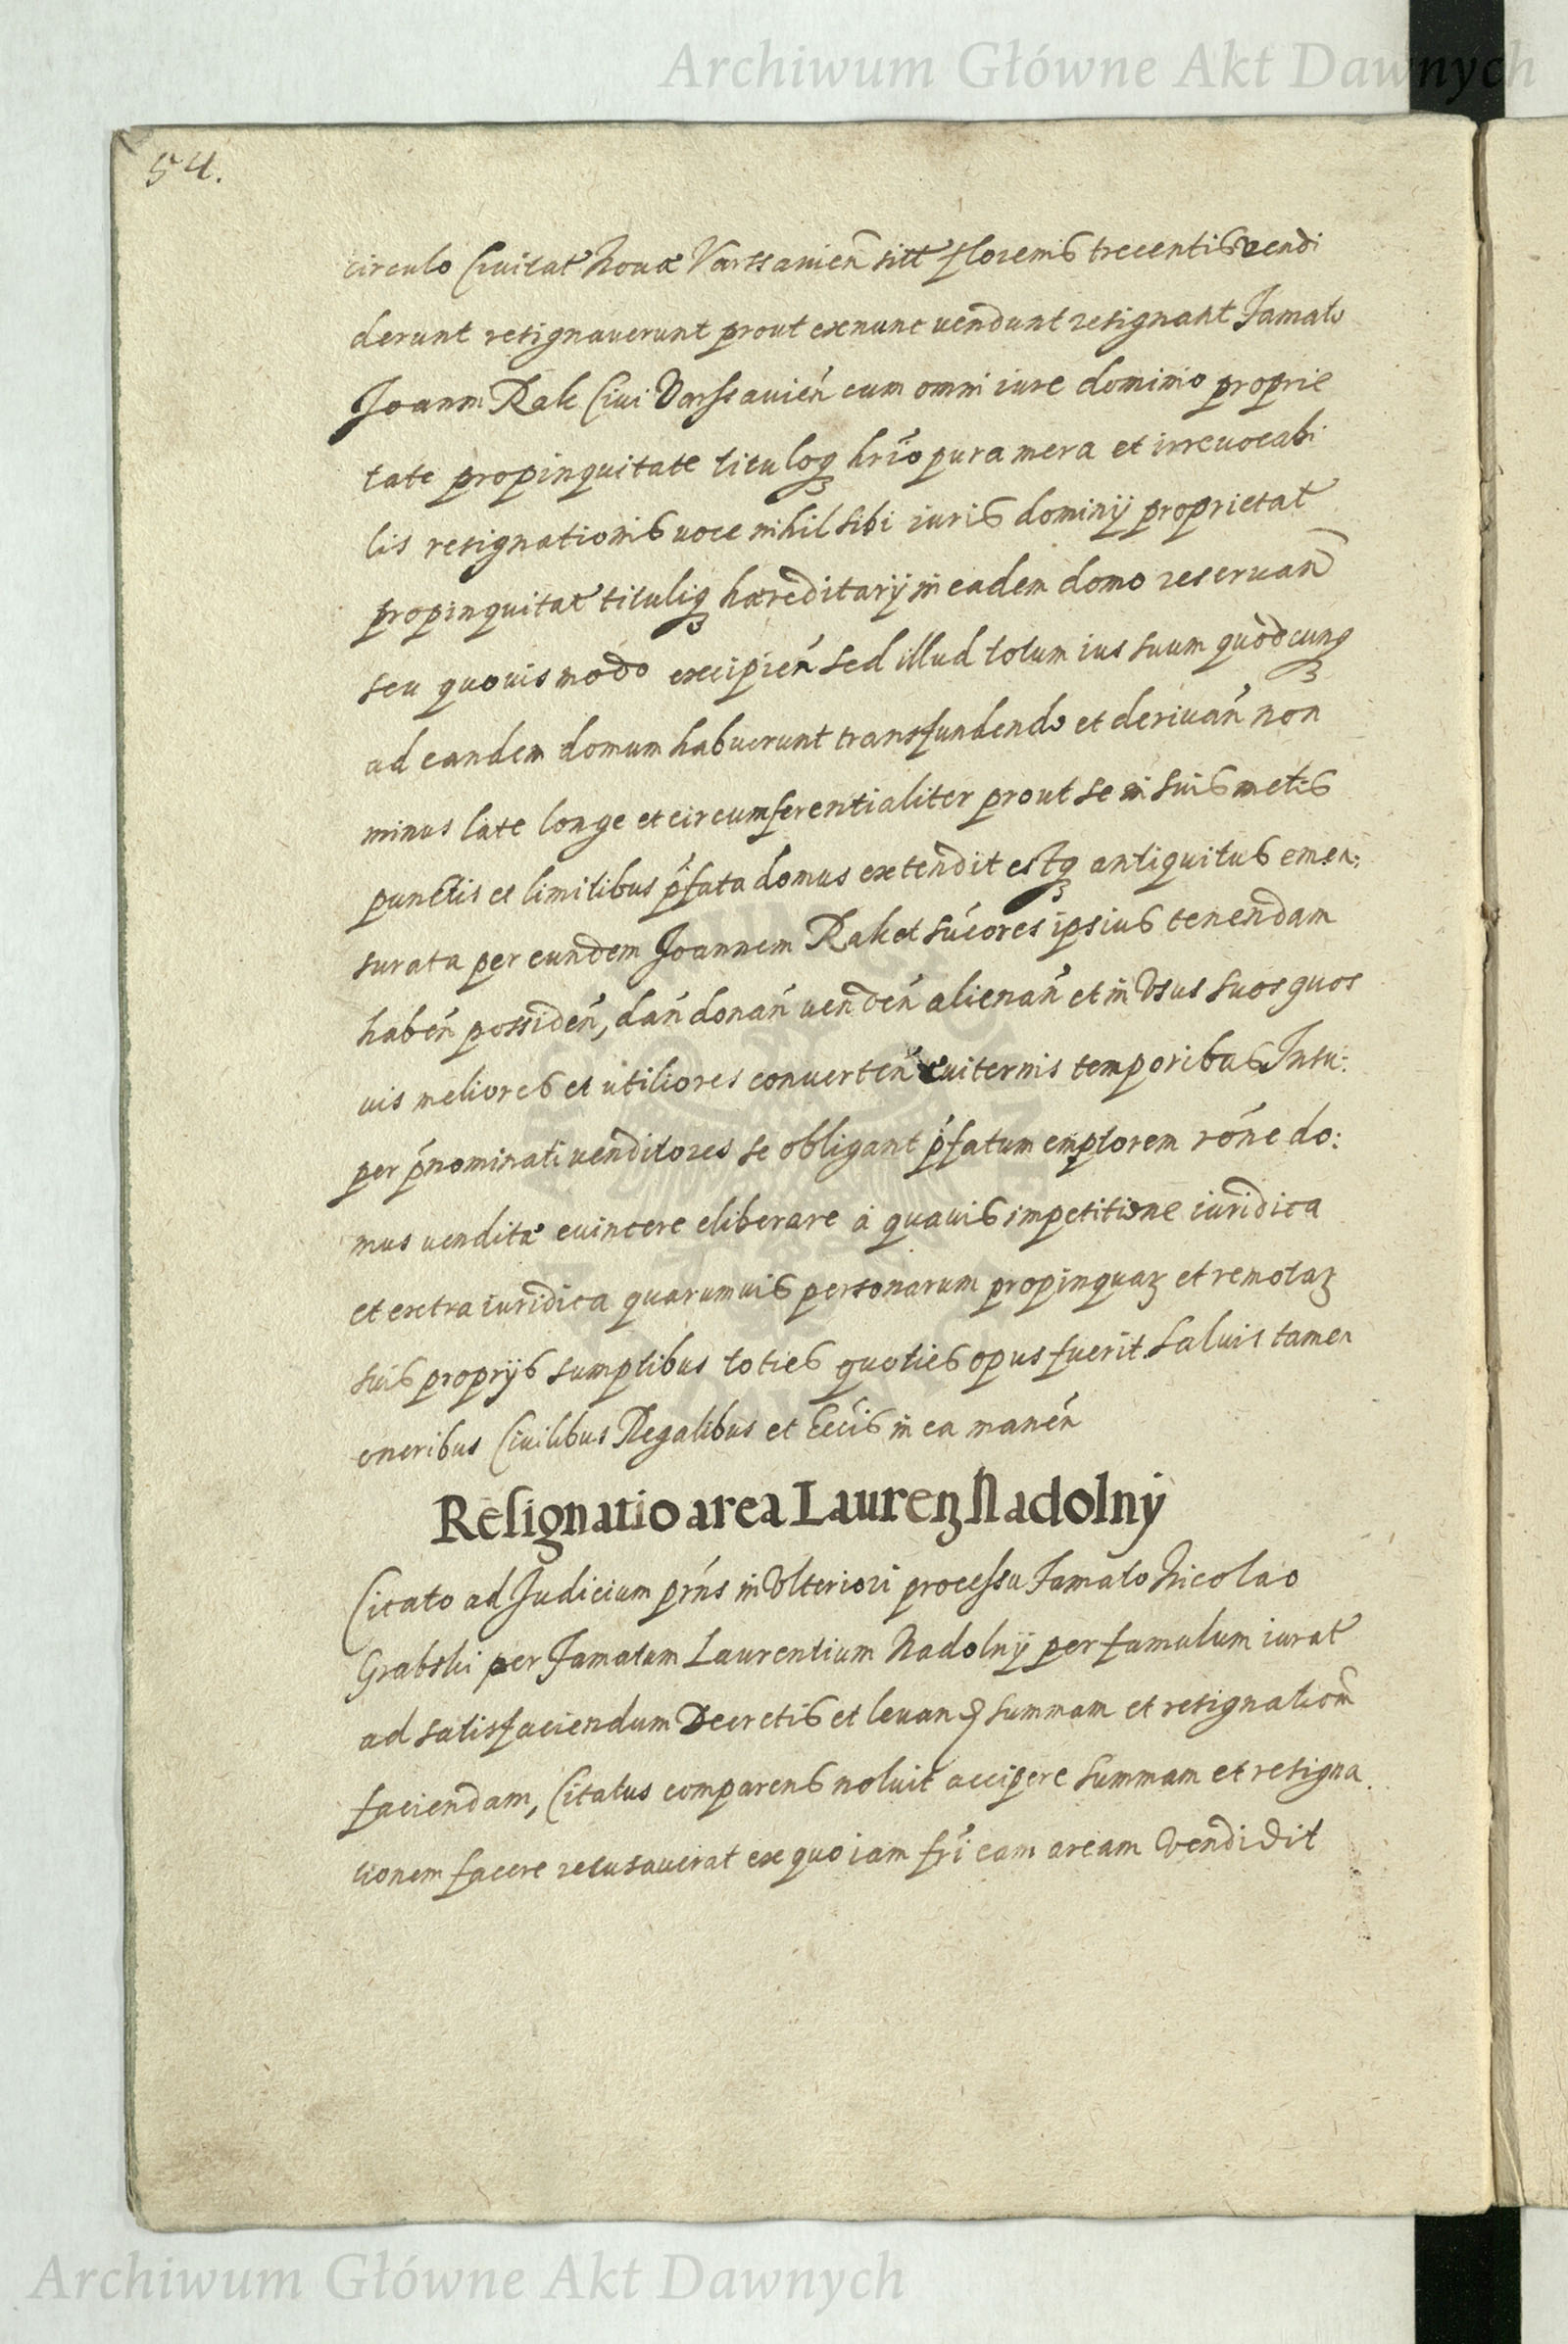 Archiwum Główne Akt Dawnych
54.
circulo Ciuitat Nouæ Varssauien sitt florenis trecentis vendi
derunt resignauerunt prout exnunc vendunt resignant Famato
Joanni Rak Ciui Varssauien cum omni iure dominio proprie
tate propinquitate tituloq hrio pura mera et irreuocabi
lis resignationis uoce nihil sibi iuris dominij proprietat
propinquitat tituliq hæreditarij in eadem domo reseruan
seu quouismodo excipien sed illud totum ius suum quodcunq
ad eandem domum habuerunt transfundendo et deriuan non
minus late longe et circumferentialiter prout se in suis metis
punctis et limitibus pfata domus extendit estq antiquitus emen:
surata per eundem Joannem Rak et sucores ipsius tenendam
haben possiden, dan donan venden alienan et in Vsus suos quos
uis meliores et utiliores conuerten æuiternis temporibus Insu:
per pnominati venditores se obligant pfatum emptorem rone do:
mus venditæ euincere eliberare à quauis impetitione iuridica
et extraiuridica quarumuis personarum propinquaz et remotaz
suis proprijs sumptibus toties quoties opus fuerit. Saluis tamen
oneribus Ciuilibus Regalibus et Eccis in ea manen
Resignatio area Laurenz Nadolny
Citato ad Judicium prns in Vlteriori processu Famato Nicolao
Grabski per Famatum Laurentium Nadolnÿ per famulum iurat
ad satisfaciendum Decretis et leuan summam et resignatiom
faciendam, Citatus comparens noluit accipere summam et resigna
tionem facere recusauerat ex quo iam fri eam aream Vendidit
Archiwum Główne Akt Dawnych